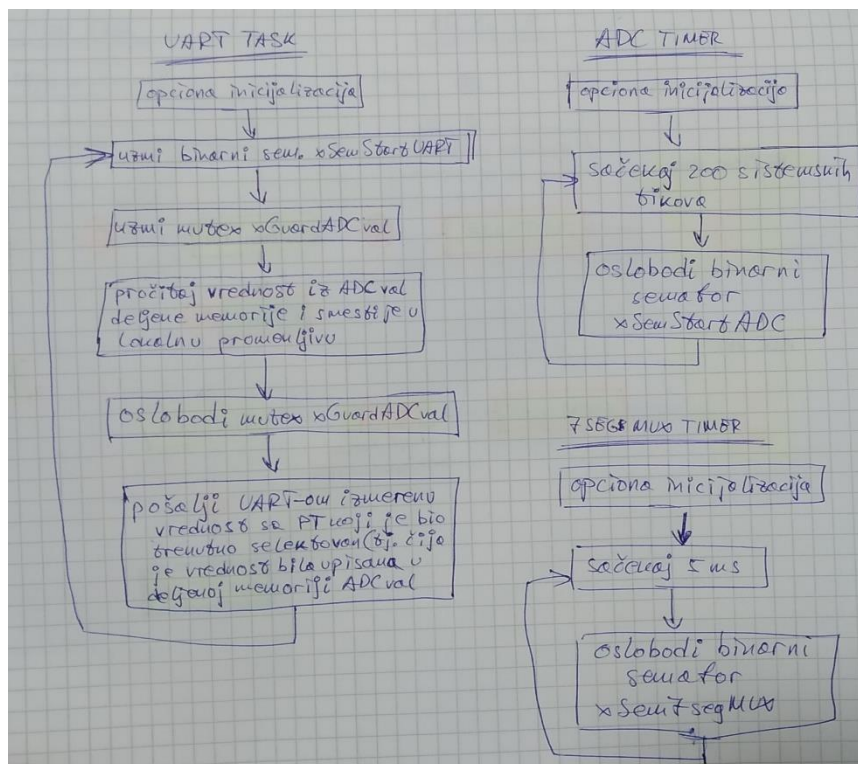 UART TASK
opciona inicijalizacija
uzmi binarni sem. xSemStartUART
uzmi mutex xGuardADCval
pročitaj vrednost iz ADCval
deljene memorije i smesti je u
lokalnu promenljivu
oslobodi mutex xGuardADCval
pošalji UART-om izmerenu
vrednost sa PT koji je bio
trenutno selektovan (tj. čija
je vrednost bila upisana u
deljenoj memoriji ADCval
ADC TIMER
opciona inicijalizacija
sačekaj 200 sistemskih
tikova
oslobodi binarni
semafor
xSemStartADC
7SEG MUX TIMER
opciona inicijalizacija
sačekaj 5 ms
oslobodi binarni
semafor
xSem7segMUX